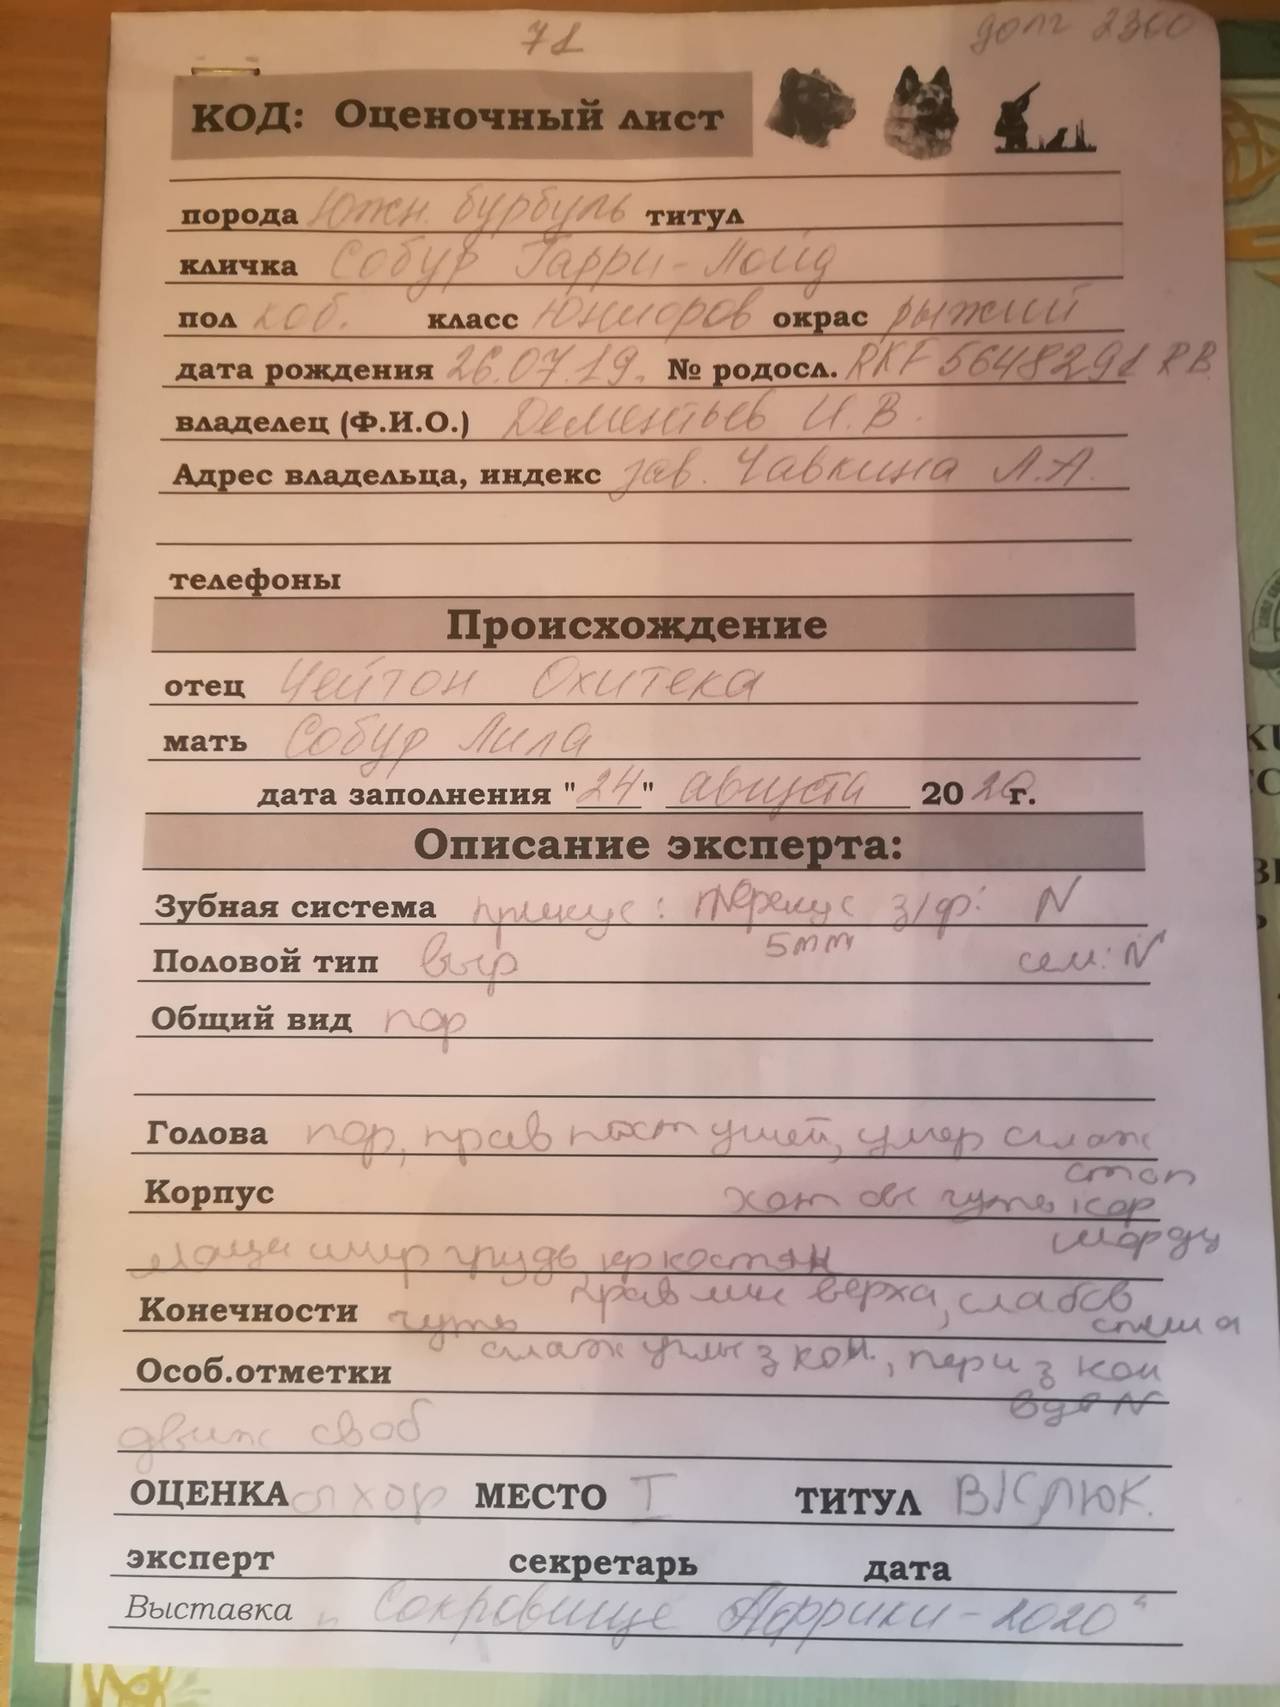 71 долг 2300
КОД: Оценочный лист
порода Южн. бурбуль титул
кличка Собур Гарри-Лойд
пол коб. класс Юниоров окрас рыжий
дата рождения 26.07.19. № родосл. RKF 5648291 RB
владелец (Ф.И.О.) Дементьев И.В.
Адрес владельца, индекс зав. Чавкина Л.А.
телефоны
Происхождение
отец Чейтон Охитека
мать Собур Лила
дата заполнения "24" августа 2020г.
Описание эксперта:
Зубная система прикус: перекус з/ф: N
5mm
Половой тип выр сем: N
Общий вид пор
Голова пор, прав пост ушей, умер сглаж
стоп
Корпус чуть кор
морду
шир грудь кр костяк
прав лин верха, слабов
Конечности чуть спина
сглаж углы з кон., пери з кон
Особ.отметки
движ своб
ОЦЕНКА оч хор МЕСТО I ТИТУЛ В/К, ЛЮК.
эксперт секретарь дата
Выставка "Сокровище Африки-2020"